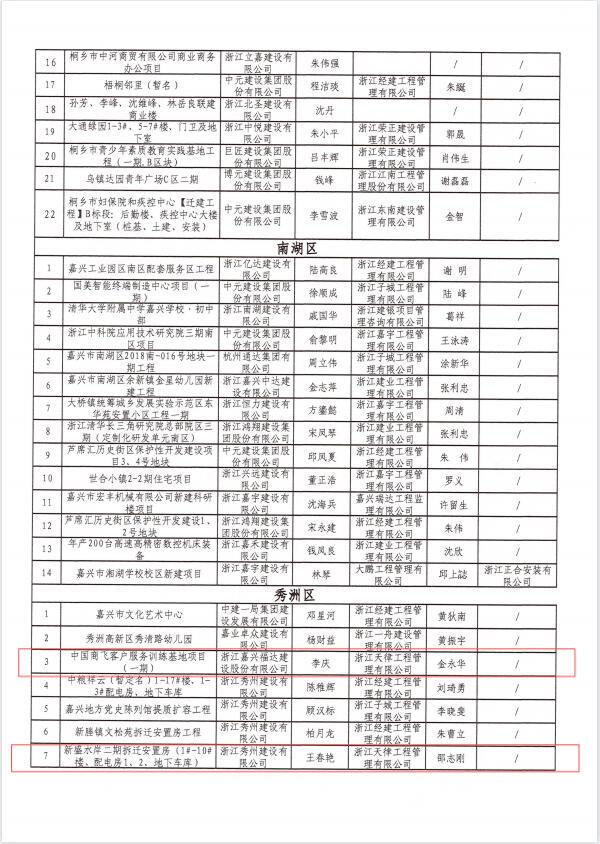 16 桐乡市中河商贸有限公司商业商务办公项目 浙江立嘉建设有限公司 朱伟强 / /
17 梧桐邻里（暂名） 中元建设集团股份有限公司 程洁琰 浙江经建工程管理有限公司 朱鋋 /
18 孙芳、李峰、沈维峰、林岳良联建商业楼 浙江北圣建设有限公司 沈丹 / /
19 大通绿园1-3#、5-7#楼、门卫及地下室 浙江中悦建设有限公司 朱小平 浙江荣正建设管理有限公司 郭晟 /
20 桐乡市青少年素质教育实践基地工程（一期.B区块） 巨匠建设集团股份有限公司 吕丰辉 浙江荣正建设管理有限公司 肖伟生 /
21 乌镇达园青年广场C区二期 博元建设集团股份有限公司 钱峰 浙江江南工程管理有限公司 谢磊磊 /
22 桐乡市妇保院和疾控中心【迁建工程】B标段：后勤楼、疾控中心大楼及地下室（桩基、土建、安装） 中元建设集团股份有限公司 李雪波 浙江东南建设管理有限公司 金智 /
南湖区
1 嘉兴工业园区南区配套服务区工程 浙江亿达建设有限公司 陆高良 浙江经建工程管理有限公司 谢 明 /
2 国美智能终端制造中心项目（一期） 中元建设集团股份有限公司 徐顺成 浙江子城工程管理有限公司 陆 峰 /
3 清华大学附属中学嘉兴学校·初中部 浙江南湖建设有限公司 戚国华 浙江建银项目管理咨询有限公司 葛祥 /
4 浙江中科院应用技术研究院三期南区项目 中元建设集团股份有限公司 俞黎明 浙江嘉宇工程管理有限公司 王泳涛 /
5 嘉兴市南湖区2018南-016号地块一期工程 杭州通达集团有限公司 周立伟 浙江子城工程管理有限公司 涂新华 /
6 嘉兴市南湖区余新镇金星幼儿园新建工程 浙江嘉兴中达建设有限公司 金志萍 浙江建业工程管理有限公司 张利忠 /
7 大桥镇统筹城乡发展实验示范区东华苑安置小区工程一期 浙江恒力建设有限公司 方鎏懿 浙江嘉宇工程管理有限公司 周清 /
8 浙江清华长三角研究院总部院区三期（定制化研发单元南区） 浙江鸿翔建设集团股份有限公司 宋凤琴 浙江建业工程管理有限公司 张利忠 /
9 芦席汇历史街区保护性开发建设项目3、4号地块 中元建设集团股份有限公司 邱凤夏 浙江嘉宇工程管理有限公司 朱 伟 /
10 世合小镇2-2期住宅项目 浙江兴远建设有限公司 董正浩 浙江嘉宇工程管理有限公司 罗义 /
11 嘉兴市宏丰机械有限公司新建科研楼项目 浙江嘉宇建设有限公司 沈海兵 嘉兴瑞达工程监理有限公司 许留生 /
12 芦席汇历史街区保护性开发建设1、2号地块 浙江鸿翔建设集团股份有限公司 宋永建 浙江经建工程管理有限公司 朱伟 /
13 年产200台高速高精密数控机床装备 浙江嘉禾建设有限公司 钱凤良 浙江建业工程管理有限公司 沈欣 /
14 嘉兴市湘湖学校校区新建项目 浙江嘉宇建设有限公司 林琴 大鹏工程管理有限公司 邱上誌 浙江正合安装有限公司
秀洲区
1 嘉兴市文化艺术中心 中建一局集团建设发展有限公司 邓星河 浙江经建工程管理有限公司 黄狄南 /
2 秀洲高新区秀清路幼儿园 嘉业卓众建设有限公司 杨财益 浙江一舟建设管理有限公司 黄振宇 /
3 中国商飞客户服务训练基地项目（一期） 浙江嘉兴福达建设股份有限公司 李庆 浙江天律工程管理有限公司 金永华 /
4 中粮祥云（暂定名）1-17#楼、1-3#配电房、地下车库 浙江秀州建设有限公司 陈稚辉 浙江经建工程管理有限公司 刘琦勇 /
5 嘉兴地方党史陈列馆提质扩容工程 浙江秀州建设有限公司 顾汉标 浙江子城工程管理有限公司 李晓斐 /
6 新塍镇文松苑拆迁安置房工程 浙江秀州建设有限公司 柏月龙 浙江嘉宇工程管理有限公司 朱曹立 /
7 新盛水岸二期拆迁安置房（1#-10#楼、配电房1、2、地下车库） 浙江秀州建设有限公司 王春艳 浙江天律工程管理有限公司 邵志刚 /